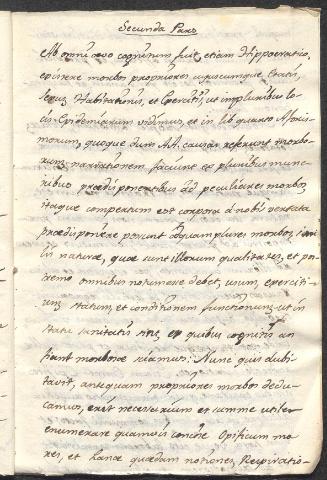 Secunda Pars
Ab omni ævo cognitum fuit, etiam Hippocratico,
existere morbos propriores cujuscumque Ætatis,
Sexus Habitationis, et Exercitii, ut in pluribus lo-
cis Epidemiarum vidimus, et in lib quarto Aforis-
morum, quoque dum AA. causas referunt morbo-
rum narrationem faciunt ex pluribus mune-
ribus prædisponentibus ad peculiares morbos
itaque compertum est corpora à nobis
prædisponere possunt ad quam plures morbos,
naturæ, quæ sunt illorum qualitates, et pos-
tremo omnibus debet, usum, exerciti-
um statum, et conditionem functionum, ut in
statu sanitatis sint, ex quibus cognitis an
fiant morbosæ viamus: Nunc quis dubi-
tavit, antequam propriores morbos dedu-
camus, erit necessarium et summe utile
enumerare quamvis concise Opificum mo-
res, et hanc quædam notiones, Respiratio-